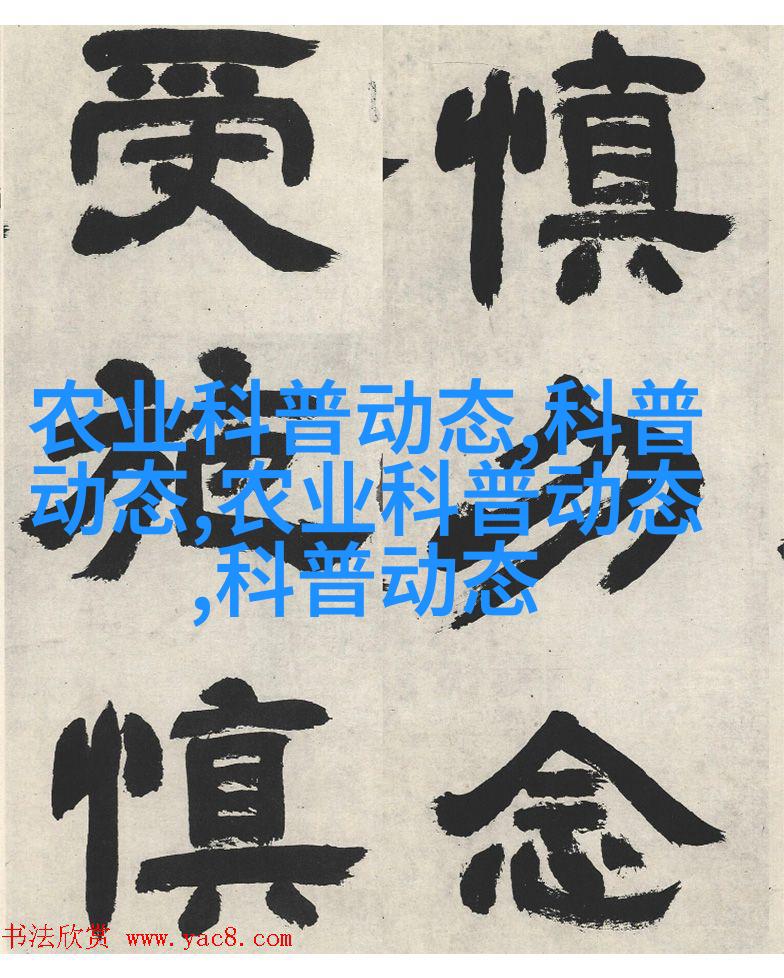 慎勿念
受施慎
农业科普动态,科普
动态,农业科普动态
,科普动态
书法欣赏 www.yac8.com